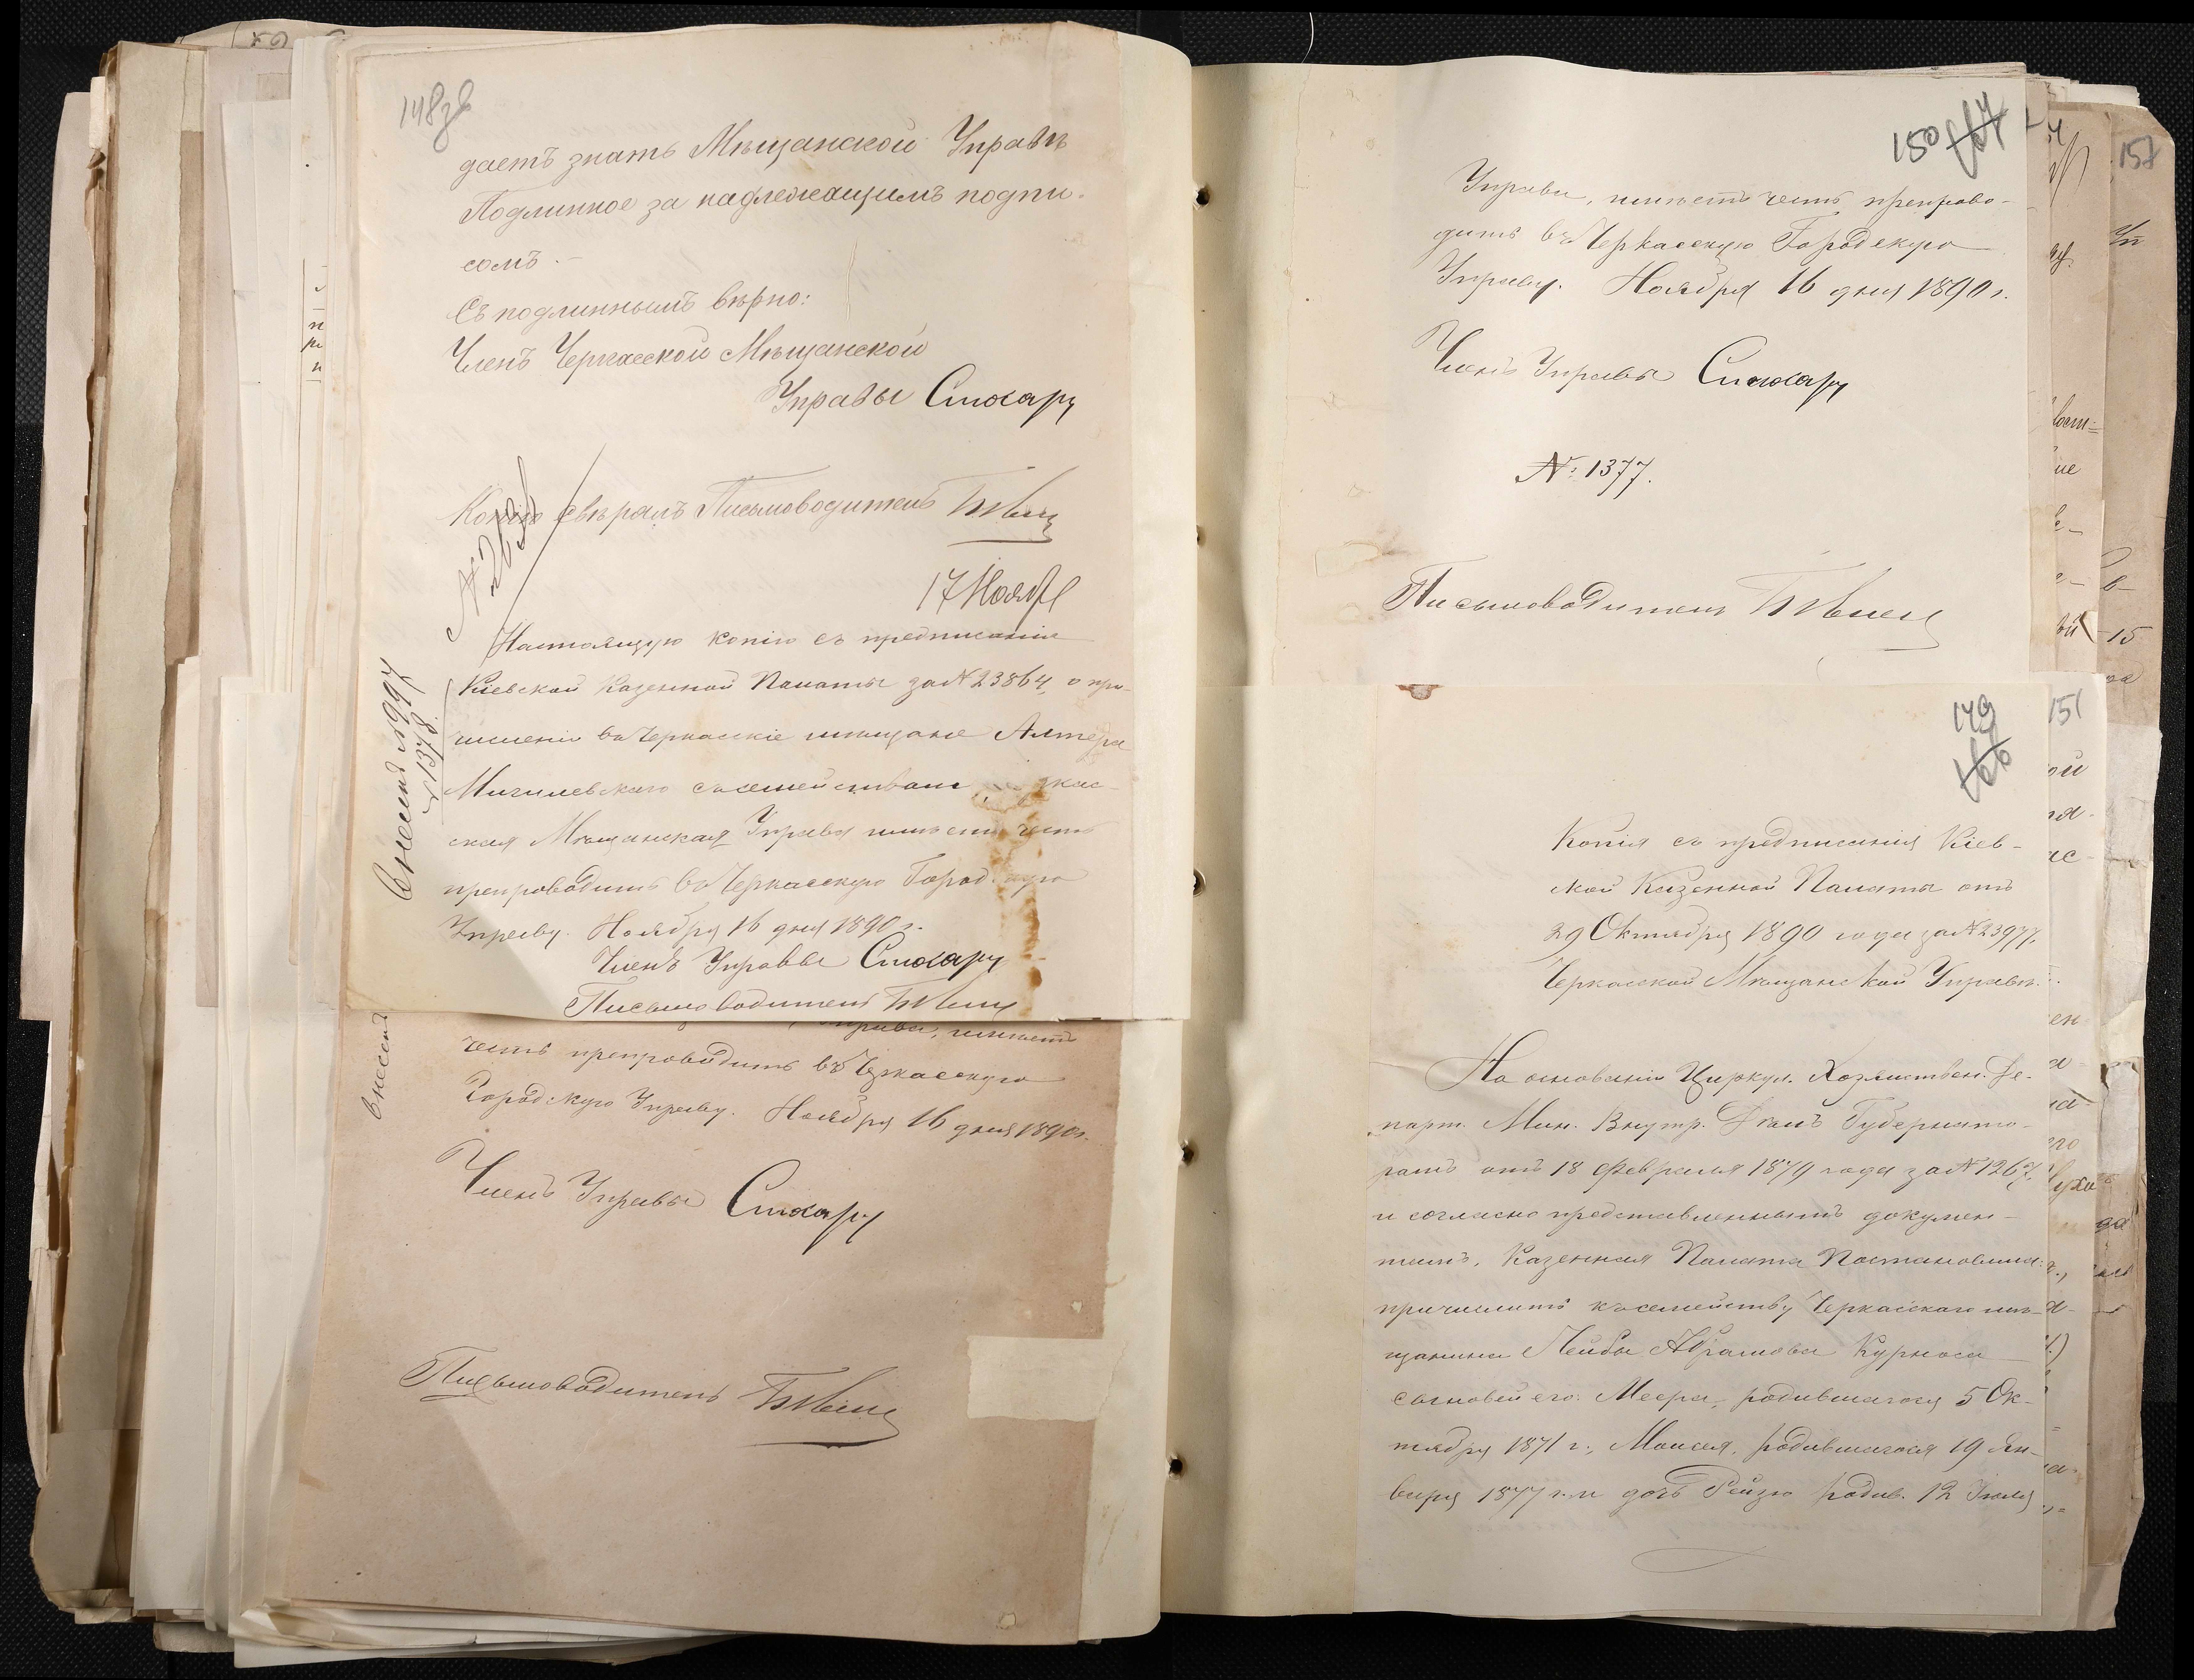 148 зв
даетъ знать Мѣщанской Управѣ
Подлинное за надлежащимъ подпи-
сомъ.-
Съ подлиннымъ вѣрно:
Членъ Черкасской Мѣщанской
Управы
Копію свѣрялъ Письмоводитель
17 Ноября
Настоящую копію съ предписанія
Кіевской Казенной Палаты за № 23864, о при-
численіи въ Черкасскіе мѣщане Алтера
Мигилевскаго съ семействомъ кас-
ская Мѣщанская Управа имѣетъ честь
препроводить въ Черкасскую Городскую
Управу. Ноября 16 дня 1890 г.
Членъ Управы
Письмоводитель
№ 1378.
Управа, имѣетъ
честь препроводить въ Черкасскую
Городскую Управу. Ноября 16 дня 1890 г.
Членъ Управы
Письмоводитель
150 167
Управа, имѣетъ честь препрово-
дить въ Черкасскую Городскую
Управу. Ноября 16 дня 1890 г.
Членъ Управы
№: 1377.
Письмоводитель
149
166
Копія съ предписанія Кіев-
ской Казенной Палаты отъ
29 Октября 1890 года за № 23977.
Черкасской Мѣщанской Управѣ.
На основаніи Циркул. Хозяиствен. Де-
парт. Мин. Внутр. Дѣлъ Губернато-
рамъ отъ 18 Февраля 1879 года за № 1267,
и согласно представленнымъ докумен-
тамъ, Казенная Палата Постановила:
причислить къ семейству Черкасскаго мѣ-
щанина Лейбы Абрамова Курноса
сыновей его: Меера, родившагося 5 Ок-
тября 1871 г., Моисея, родившагося 19 Ян-
варя 1877 г. и дочь Рейзю родив. 12 Іюля
151
157